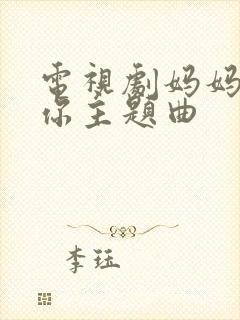 電視劇妈妈
你主題曲
李珏